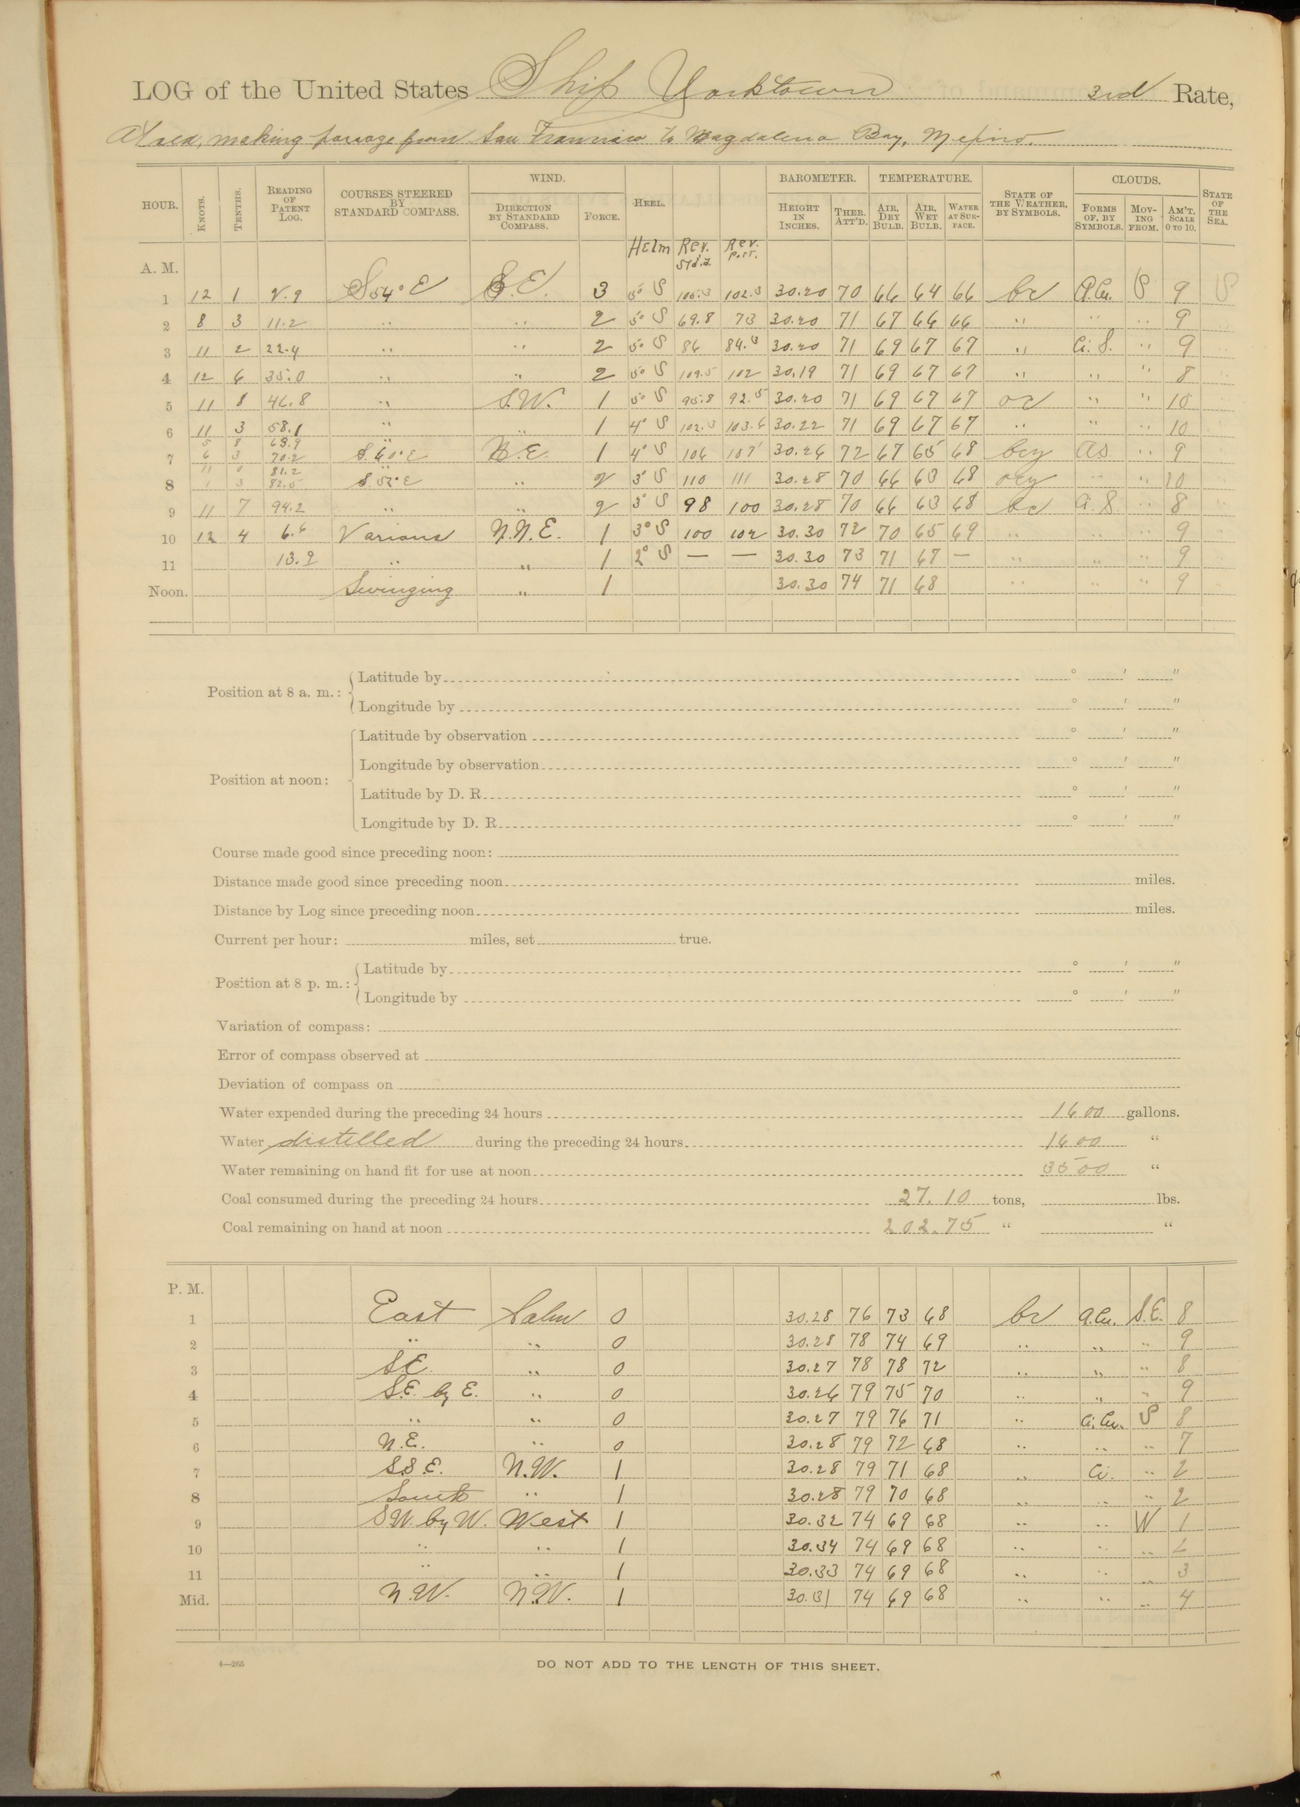 LOG of the United States Ship Yorktown 3rd Rate,
At sea, making passage from San Francisco to Magdalena Bay, Mexico.
HOUR. KNOTS. TENTHS. READING OF PATENT LOG. COURSES STEERED BY STANDARD COMPASS. WIND. DIRECTION BY STANDARD COMPASS. FORCE. HEEL. BAROMETER. HEIGHT IN INCHES. THER. ATT'D. TEMPERATURE. AIR, DRY BULB. AIR, WET BULB. WATER AT SURFACE. STATE OF THE WEATHER, BY SYMBOLS. CLOUDS. FORMS OF, BY SYMBOLS. MOVING FROM. AM'T, SCALE 0 TO 10. STATE OF THE SEA.
Helm Rev. Stb'd Rev. Port.
A. M.
1 12 1 2.9 S 54° E S.E. 3 5° S 100.3 102.3 30.20 70 66 64 66 bc A.Cu. S 9 S
2 8 3 11.2 " " 2 5° S 69.8 73 30.20 71 67 66 66 " " " 9
3 11 2 22.4 " " 2 5° S 86 84.3 30.20 71 69 67 67 " Ci. S. " 9
4 12 6 35.0 " " 2 5° S 109.5 102 30.19 71 69 67 67 " " " 8
5 11 8 46.8 " S.W. 1 5° S 95.8 92.5 30.20 71 69 67 67 oc " " 10
6 11 3 58.1 " " 1 4° S 102.3 103.6 30.22 71 69 67 67 " " " 10
5 8 63.9
7 6 3 70.2 S. 60° E N.E. 1 4° S 106 107 30.26 72 67 65 68 bcy A S 9
11 0 81.2
8 1 3 82.5 S. 52° E " 2 3° S 110 111 30.28 70 66 63 68 ocy " " 10
9 11 7 94.2 " " 2 3° S 98 100 30.28 70 66 63 68 bc A. S. " 8
10 12 4 6.6 Various N.N.E. 1 3° S 100 102 30.30 72 70 65 69 " " " 9
11 13.2 " " 1 2° S — — 30.30 73 71 67 — " " " 9
Noon. Swinging " 1 30.30 74 71 68 " " " 9
Position at 8 a. m.: Latitude by ° ' "
Longitude by ° ' "
Position at noon: Latitude by observation ° ' "
Longitude by observation ° ' "
Latitude by D. R. ° ' "
Longitude by D. R. ° ' "
Course made good since preceding noon:
Distance made good since preceding noon miles.
Distance by Log since preceding noon miles.
Current per hour: miles, set true.
Position at 8 p. m.: Latitude by ° ' "
Longitude by ° ' "
Variation of compass:
Error of compass observed at
Deviation of compass on
Water expended during the preceding 24 hours 1600 gallons.
Water distilled during the preceding 24 hours 1600 "
Water remaining on hand fit for use at noon 3500 "
Coal consumed during the preceding 24 hours 27.10 tons, lbs.
Coal remaining on hand at noon 202.75 " "
P. M.
1 East Calm 0 30.28 76 73 68 bc A.Cu. S.E. 8
2 " " 0 30.28 78 74 69 " " " 9
3 S.E. " 0 30.27 78 78 72 " " " 8
4 S.E. by E. " 0 30.26 79 75 70 " " " 9
5 " " 0 30.27 79 76 71 " Ci.Cu. S 8
6 N.E. " 0 30.28 79 72 68 " " " 7
7 S.S.E. N.W. 1 30.28 79 71 68 " Ci. " 2
8 South " 1 30.28 79 70 68 " " " 2
9 S.W. by W. West 1 30.32 74 69 68 " " W 1
10 " " 1 30.34 74 69 68 " " " 2
11 " " 1 30.33 74 69 68 " " " 3
Mid. N.W. N.W. 1 30.31 74 69 68 " " " 4
4—265
DO NOT ADD TO THE LENGTH OF THIS SHEET.